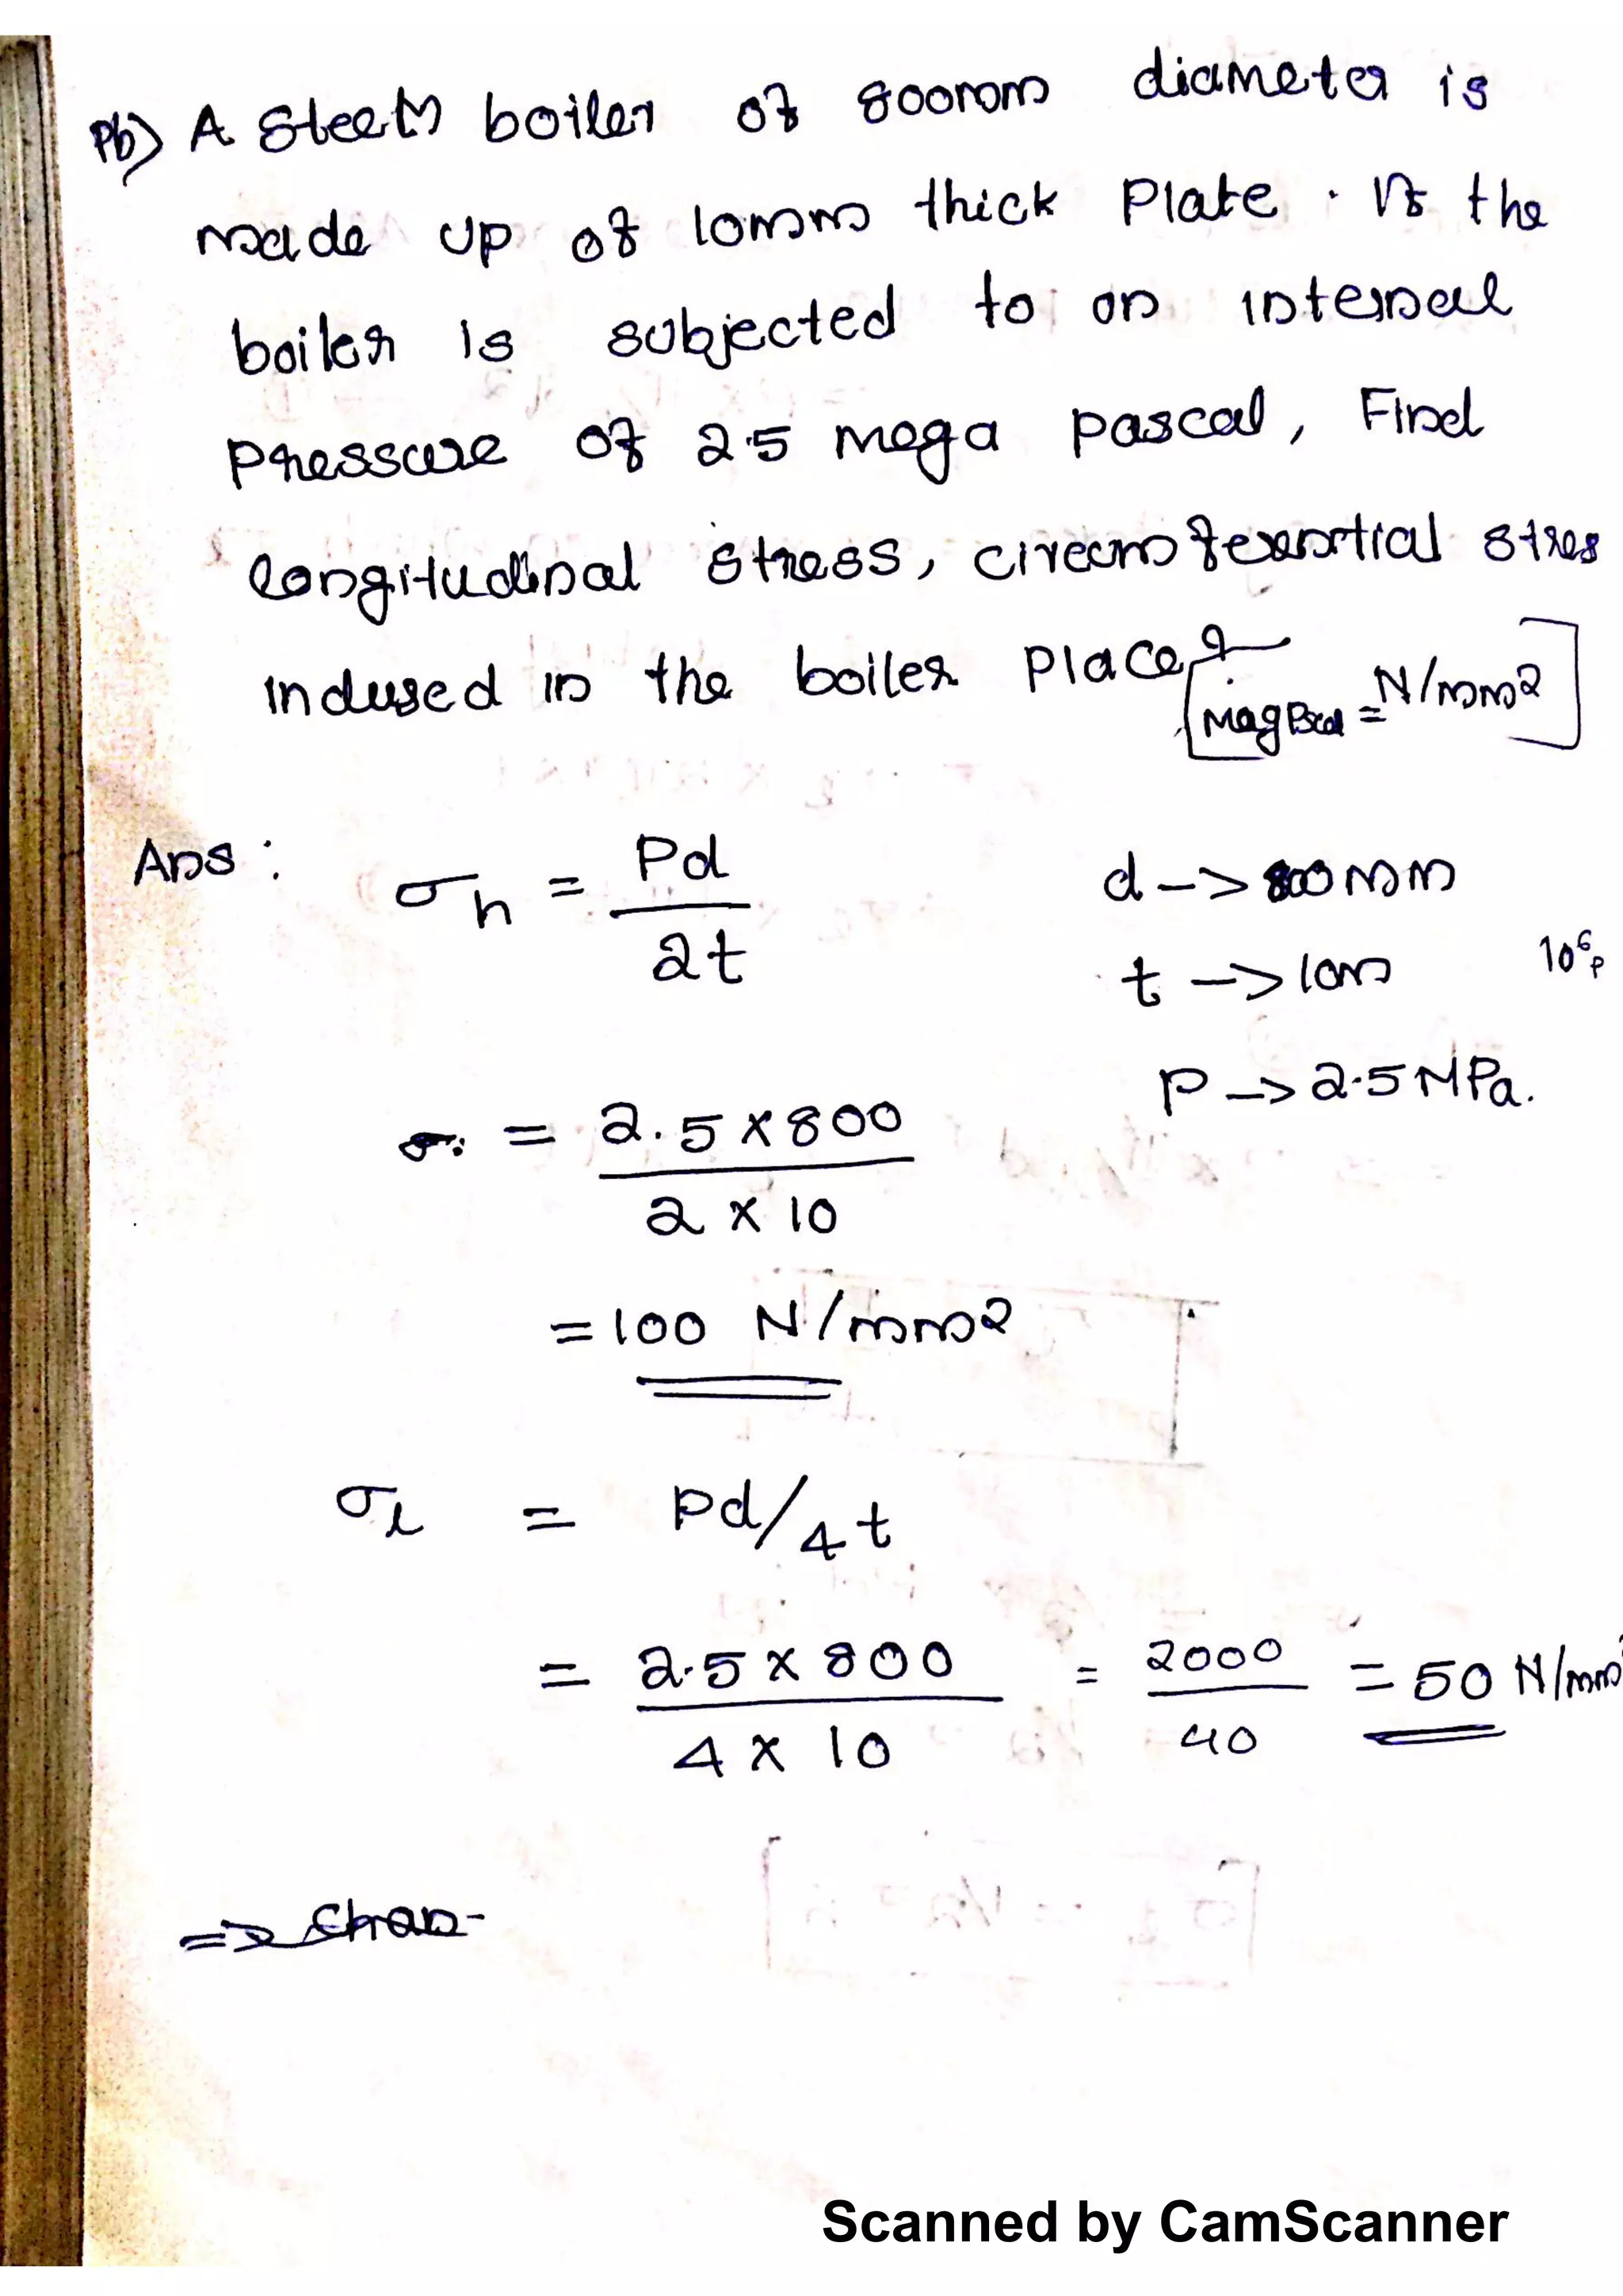 Pb) A Steem boiler of 800mm diameter is
made up of 10mm thick Plate . If the
boiler is subjected to an internal
pressure of 2.5 mega pascal, Find
longitudinal stress, circumferential stres
indused in the boiler place?
[MagPscal = N/mm2]
Ans : σh = Pd / 2t
d -> 800mm
t -> 10m
10⁶ P
P -> 2.5 MPa.
σ. = 2.5 x 800 / 2 x 10
= 100 N/mm2
σl = Pd/4t
= 2.5 x 800 / 4 x 10 = 2000 / 40 = 50 N/mm²
Scanned by CamScanner